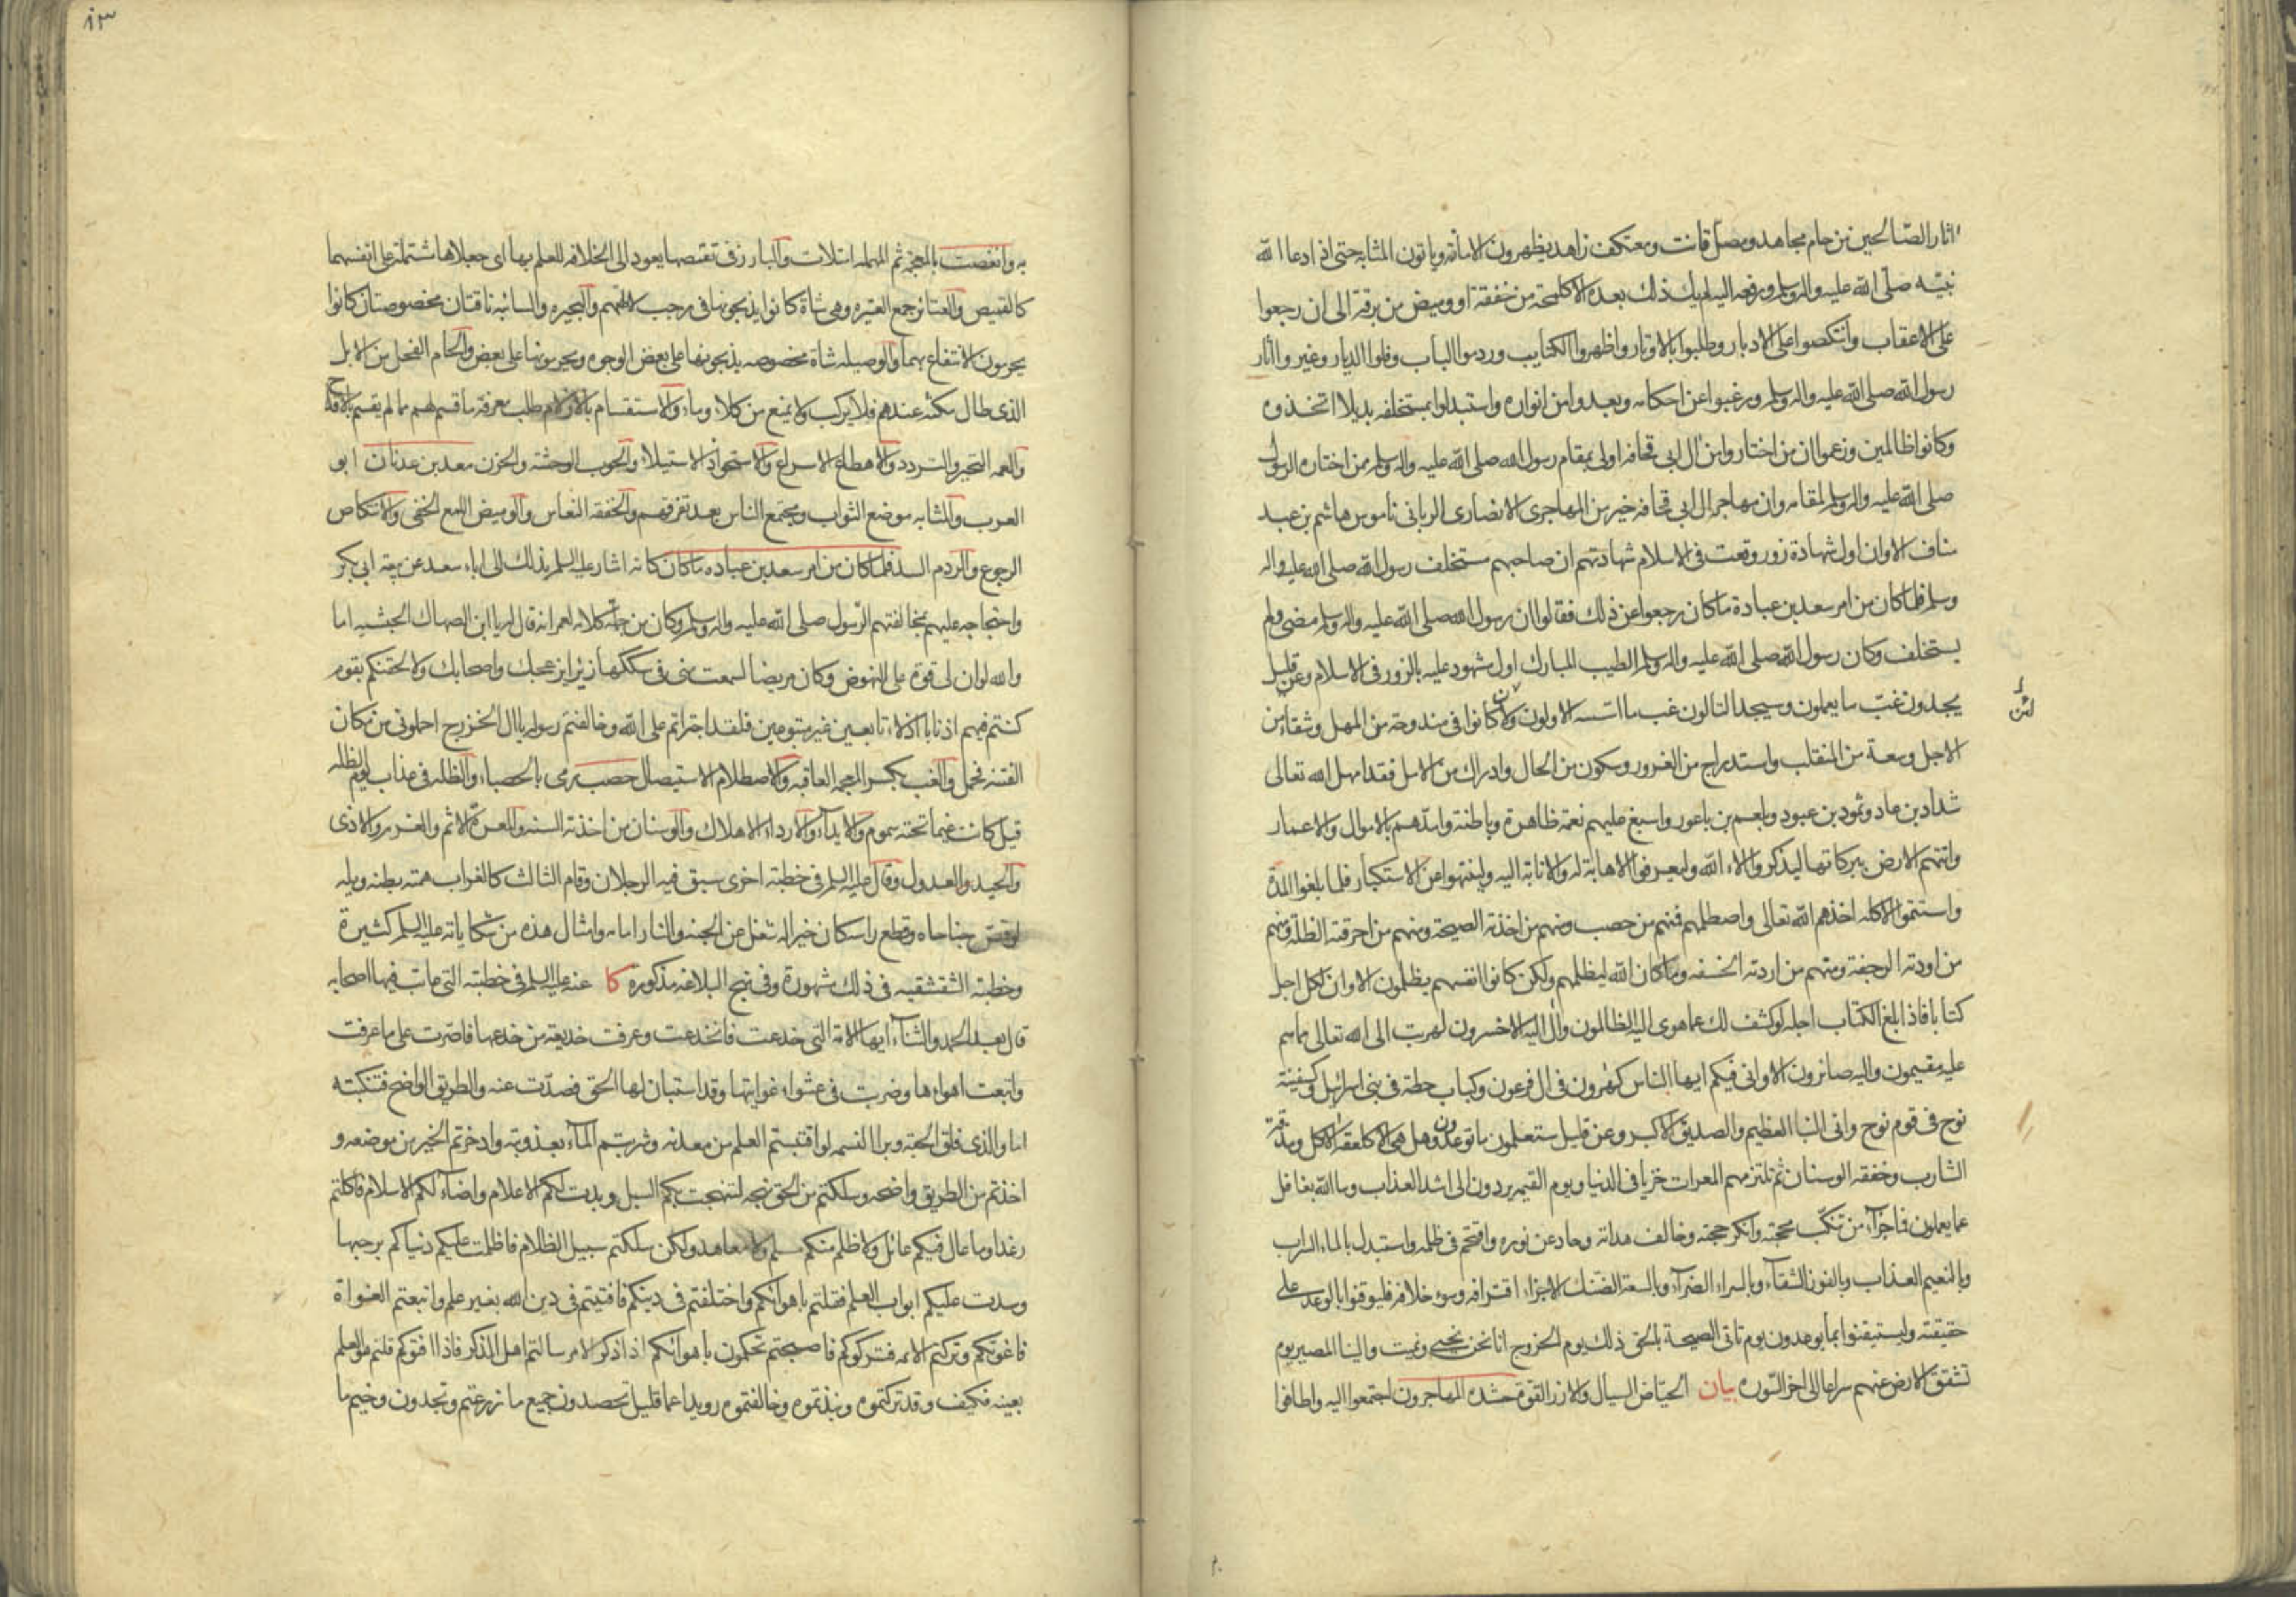 اثار الصالحين من حام مجاهد ومصل قانت ومعتكف زاهد يظهرون الامانة وياتون المثابة حتى اذا دعا الله
نبيه صلى الله عليه واله وسلم ورفعه اليه لم يك ذلك بعده الا كلمحة من خفقة او وميض من برقة الى ان رجعوا
على الاعقاب وانتكصوا على الادبار وطلبوا بالاوتار واظهروا الكتايب وردموا الباب وفلوا الديار وغيروا اثار
رسول الله صلى الله عليه واله وسلم ورغبوا عن احكامه وبعدوا من انواره واستبدلوا بمستخلفه بديلا اتخذوه
وكانوا ظالمين وزعموا ان من اختاروا من ال ابى قحافه اولى بمقام رسول الله صلى الله عليه واله وسلم ممن اختاره الرسول
صلى الله عليه واله وسلم لمقامه وان مهاجر ال ابى قحافه خير من المهاجرى الانصارى الربانى ناموس هاشم بن عبد
مناف الا وان اول شهادة زور وقعت فى الاسلام شهادتهم ان صاحبهم مستخلف رسول الله صلى الله عليه واله
وسلم فلما كان من امر سعد بن عبادة ما كان رجعوا عن ذلك فقالوا ان رسول الله صلى الله عليه واله وسلم مضى ولم
يستخلف وكان رسول الله صلى الله عليه واله وسلم الطيب المبارك اول مشهود عليه بالزور فى الاسلام وعن قليل
يجدون غب ما يعملون وسيجد التالون غب ما اسسه الاولون ولان كانوا فى مندوحة من المهل وشفاء من
لئن
الاجل وسعة من المنقلب واستدراج من الغرور وسكون من الحال وادراك من الامل فقد امهل الله تعالى
شداد بن عاد وثمود بن عبود وبلعم بن باعور واسبغ عليهم نعمة ظاهرة وباطنة وامدهم بالاموال والاعمار
واتتهم الارض ببركاتها ليذكروا الاء الله وليعرفوا الاهابة له والانابة اليه ولينتهوا عن الاستكبار فلما بلغوا المدة
واستتموا الاكله اخذهم الله تعالى واصطلمهم فمنهم من حصب ومنهم من اخذته الصيحة ومنهم من احرقته الظلة ومنهم
من اودته الرجفة ومنهم من اردته الخسفه وما كان الله ليظلمهم ولكن كانوا انفسهم يظلمون الا وان لكل اجل
كتابا فاذا بلغ الكتاب اجله لو كشف لك عما هوى اليه الظالمون وال اليه الاخسرون لهربت الى الله تعالى مما هم
عليه مقيمون واليه صائرون الا وانى فيكم ايها الناس كهرون فى ال فرعون وكباب حطة فى بنى اسرائيل وكسفينة
نوح فى قوم نوح وانى النبا العظيم والصديق الاكبر وعن قليل ستعلمون ما توعدون وهل هى الا كلعقة الاكل ومذقة
الشارب وخفقه الوسنان ثم تلتزمهم المعرات خزيا فى الدنيا ويوم القيمه يردون الى اشد العذاب وما الله بغافل
عما يعملون فما جزاء من تنكب محجته وانكر حجته وخالف هداته وحاد عن نوره واقتحم فى ظلمه واستبدل بالماء السراب
وبالنعيم العذاب وبالفوز الشقاء وبالسراء الضراء وبالسعة الضنك الا جزاء اقترافه وسوء خلافه فليوقنوا بالوعد على
حقيقته وليستيقنوا بما يوعدون يوم تاتى الصيحة بالحق ذلك يوم الخروج انا نحن نحيى ونميت والينا المصير يوم
تشقق الارض عنهم سراعا الى اخر السوره بيان الحياض السيال والازر القوة حشده المهاجرون اجتمعوا اليه واطافوا
٨٣
به وانغصت بالمعجمة ثم المهمله امتلات والبارز فى تقمصها يعود الى الخلافه للعلم بها اى جعلاها مشتملة على انفسهما
كالقميص والعتائر جمع العتيره وهى شاة كانوا يذبحونها فى رجب لالهتهم والبحيره والسائبه ناقتان مخصوصتان كانوا
يحرمون الانتفاع بهما والوصيله شاة مخصوصه يذبحونها على بعض الوجوه ويحرمونها على بعض والحام الفحل من الابل
الذى طال مكثه عندهم فلا يركب ولا يمنع من كلاء وماء والاستقسام بالازلام طلب معرفة ما قسم لهم مما لم يقسم بالاقداح
والعمه التحير والتردد والاهطاع الاسراع والاستحواذ الاستيلاء والحوب الوحشه والحزن معد بن عدنان ابو
العرب والمثابه موضع الثواب ومجتمع الناس بعد تفرقهم والخفقه النعاس والوميض اللمع الخفى والانتكاص
الرجوع والردم السد فلما كان من امر سعد بن عباده ما كان كانه اشار عليه السلم بذلك الى اباء سعد عن بيعة ابى بكر
واحتجاجه عليهم بمخالفتهم الرسول صلى الله عليه واله وسلم وكان من جملة كلامه لعمر انه قال له يا ابن الصهاك الحبشيه اما
والله لو ان لى قوة على النهوض وكان مريضا لسمعت منى فى سككها زئيرا يزعجك واصحابك ولالحقنكم بقوم
كنتم فيهم اذنابا اذلاء تابعين غير متبوعين فلقد اجتراتم على الله وخالفتم رسوله يا ال الخزرج احملونى من مكان
الفتنه فحمل والغب بكسر المعجمه العاقبه والاصطلام الاستيصال حصب رمى بالحصباء والظله فى عذاب يوم الظله
قيل كانت غيما تحته سموم والايداء والارداء الاهلاك والوسنان من اخذته السنه والمعرة الاثم والغرم والاذى
والحيد والعدول وقال عليه السلم فى خطبته اخرى سبق فيه الرجلان وقام الثالث كالغراب همته بطنه ويله
لو قص جناحاه وقطع راسه كان خيرا له شغل عن الجنه والنار امامه وامثال هذه من شكاياته عليه السلم كثيرة
وخطبته الشقشقيه فى ذلك مشهورة وفى نهج البلاغه مذكوره كا عنه عليه السلم فى خطبته التى عاب فيها اصحابه
قال بعد الحمد والثناء ايها الامة التى خدعت فانخدعت وعرفت خديعة من خدعها فاصرت على ما عرفت
واتبعت اهواءها وضربت فى عشواء غوايتها وقد استبان لها الحق فصدت عنه والطريق الواضح فتنكبته
اما والذى فلق الحبة وبرا النسمه لو اقتبستم العلم من معدنه وشربتم الماء بعذوبته وادخرتم الخير من موضعه و
اخذتم من الطريق واضحه وسلكتم من الحق نهجه لنهجت بكم السبل وبدت لكم الاعلام واضاء لكم الاسلام فاكلتم
رغدا وما عال فيكم عائل ولا ظلم منكم مسلم ولا معاهد ولكن سلكتم سبيل الظلام فاظلمت عليكم دنياكم برحبها
وسدت عليكم ابواب العلم فقلتم باهوائكم واختلفتم فى دينكم فافتيتم فى دين الله بغير علم واتبعتم الغواة
فاغوتكم وتركتم الائمه فتركوكم فاصبحتم تحكمون باهوائكم اذا ذكر الامر سالتم اهل الذكر فاذا افتوكم قلتم هو العلم
بعينه فكيف وقد تركتموه ونبذتموه وخالفتموه رويدا عما قليل تحصدون جميع ما زرعتم وتجدون وخيم ما